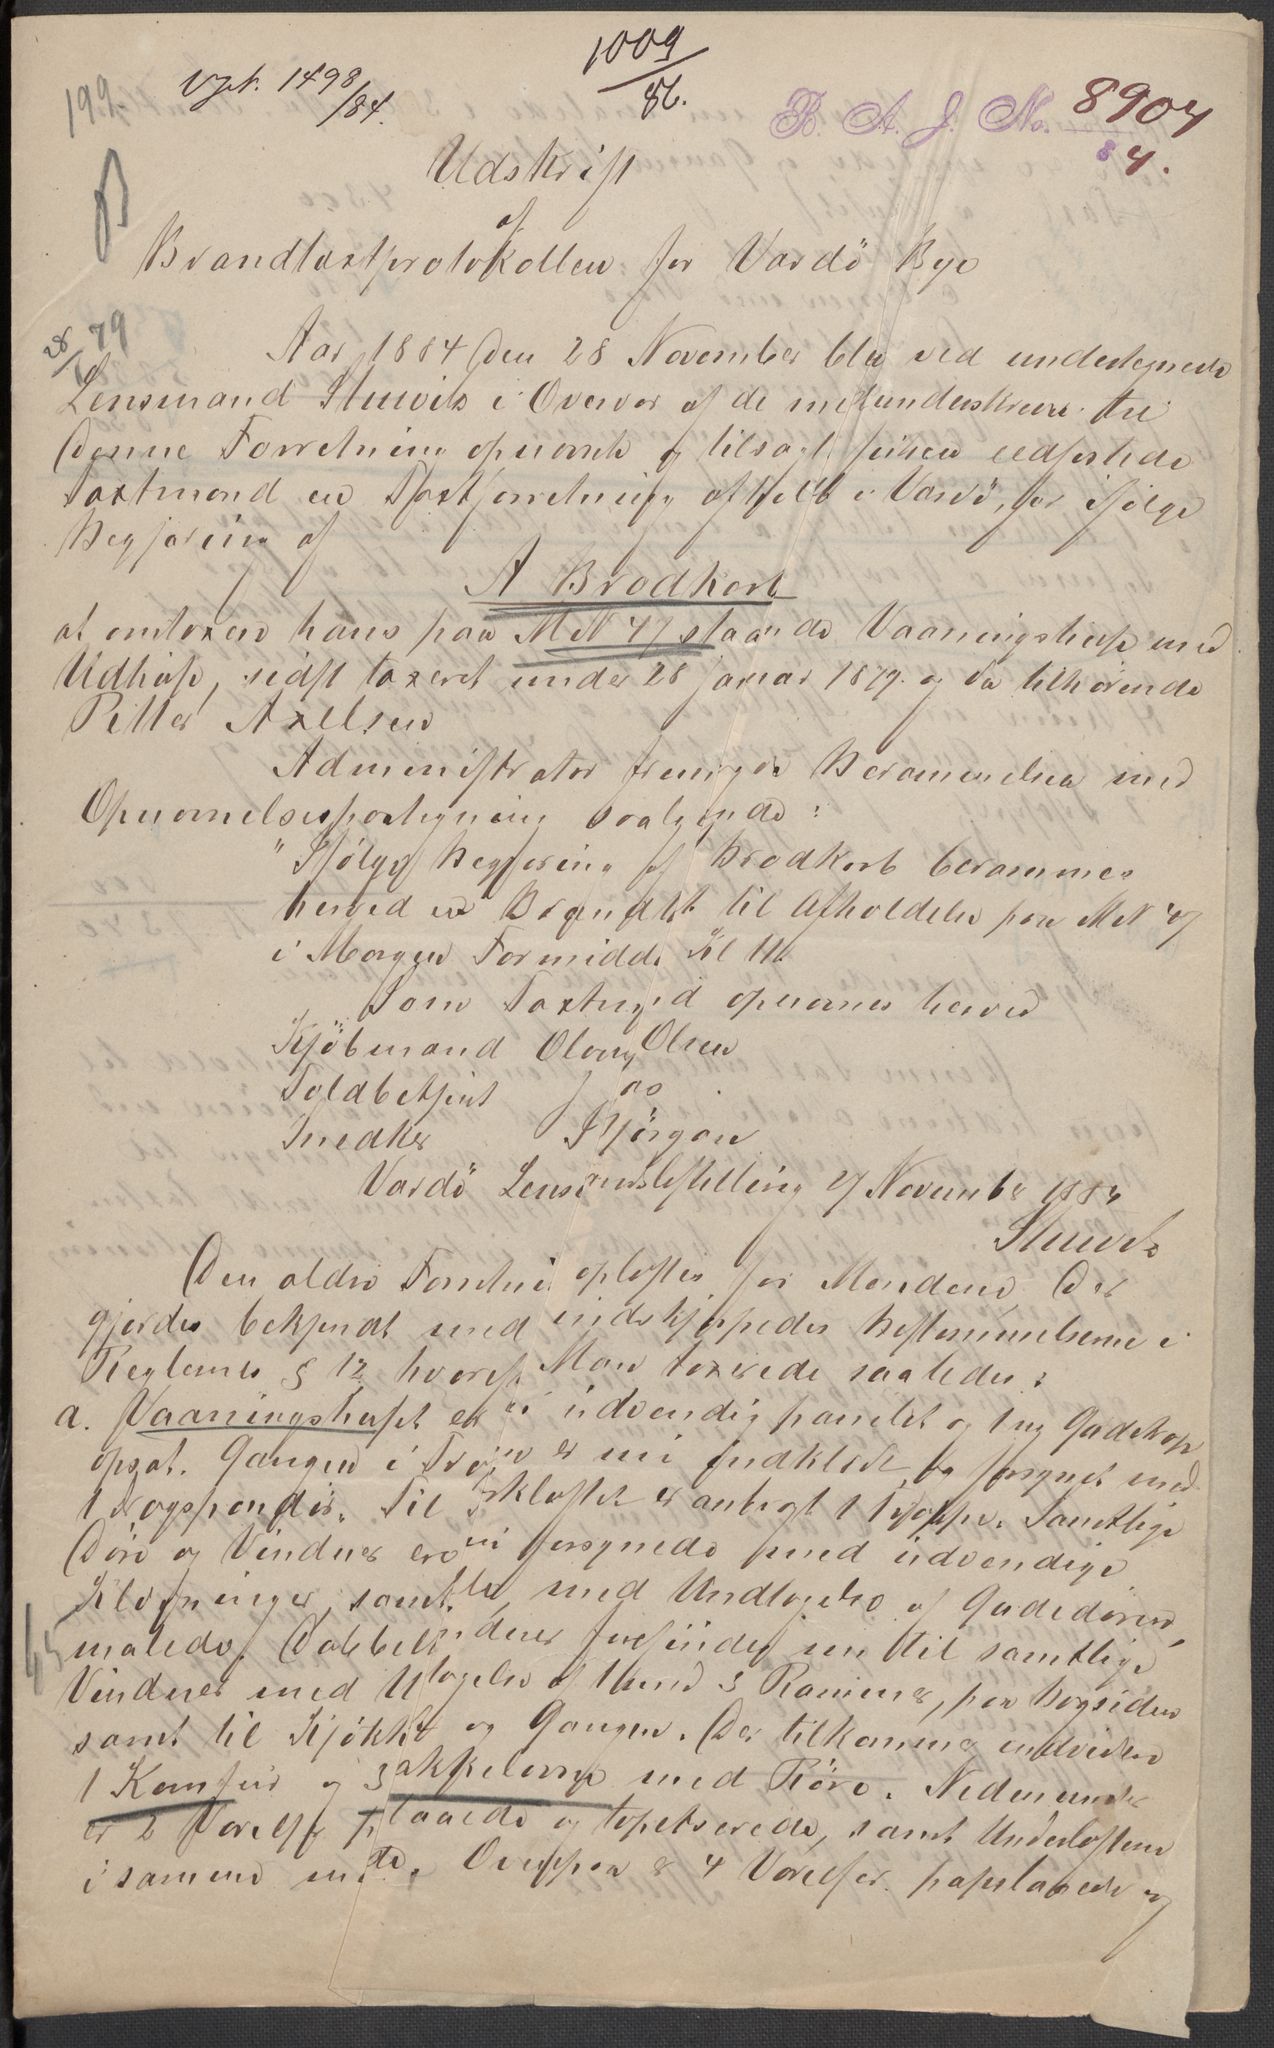 199.
Vgt. 1498/84.
1009/86.
B. A. J. No. 8904
84.
Udskrift
af
Brandtaxtprotokollen for Vardö Bye
28/1 79
Aar 1884 den 28 November blev ved undertegnede
Lensmand Stuwitz i Overvær af de medunderskrevne til
denne Forretning opnævnte og tilsagte edfæstede
Taxtmænd en Taxtforretning afholdt i Vardö, for ifölge
Begjæring af
A Brodkorb
at omtaxere hans paa MN 47 staaende Vaaningshuse med
Udhuse, sidst taxeret under 28 Januar 1879. og da tilhörende
Petter Axelsen
Administrator fremlagde Berammelsen med
Opnævnelsespaategning saalydende:
"Ifölge Begjæring af Brodkorb berammes
herved en Brandtxt til Afholdelse paa MN 47
i Morgen Formidd. Kl 11.
Som Taxtmænd opnævnes herved
Kjöbmand Olaus Olsen
Toldbetjent
Snedker Björgan
Vardö Lensmandsbestilling 27 November 1884
Stuwitz
Den ældre Forretning oplæstes for Mændene. Der
gjordes bekjendt med og indskjærpedes Bestemmelserne i
Reglernes § 12 hvorefter Man taxerede saaledes:
a. Vaaningshuset er nu udvendig panelet og 1 ny Gadetrap
opsat. Gangen i er nu indklædt og forsynet med
1 Tagspændis. Til Mörkloftet er anbragt 1 Trappe. Samtlige
Döre og Vinduer ere nu forsynede med udvendige
Klædninger, samt alle, med Undtagelse af Gadedören,
malede. Dobbeltvinduer forefindes nu til samtlige
Vinduer med Undtagelse af 1 med 3 Rammer, paa Bagsiden
samt til Kjökken og Gangen. Der tilkommer endvidere
1 Komfur og 3 Kakkelovne med Röre. Nedenunder
er 2 Værelser paplaaede og tapetserede, samt Underloftene
i samme malede. Ovenpaa er 4 Værelser papslaaede og